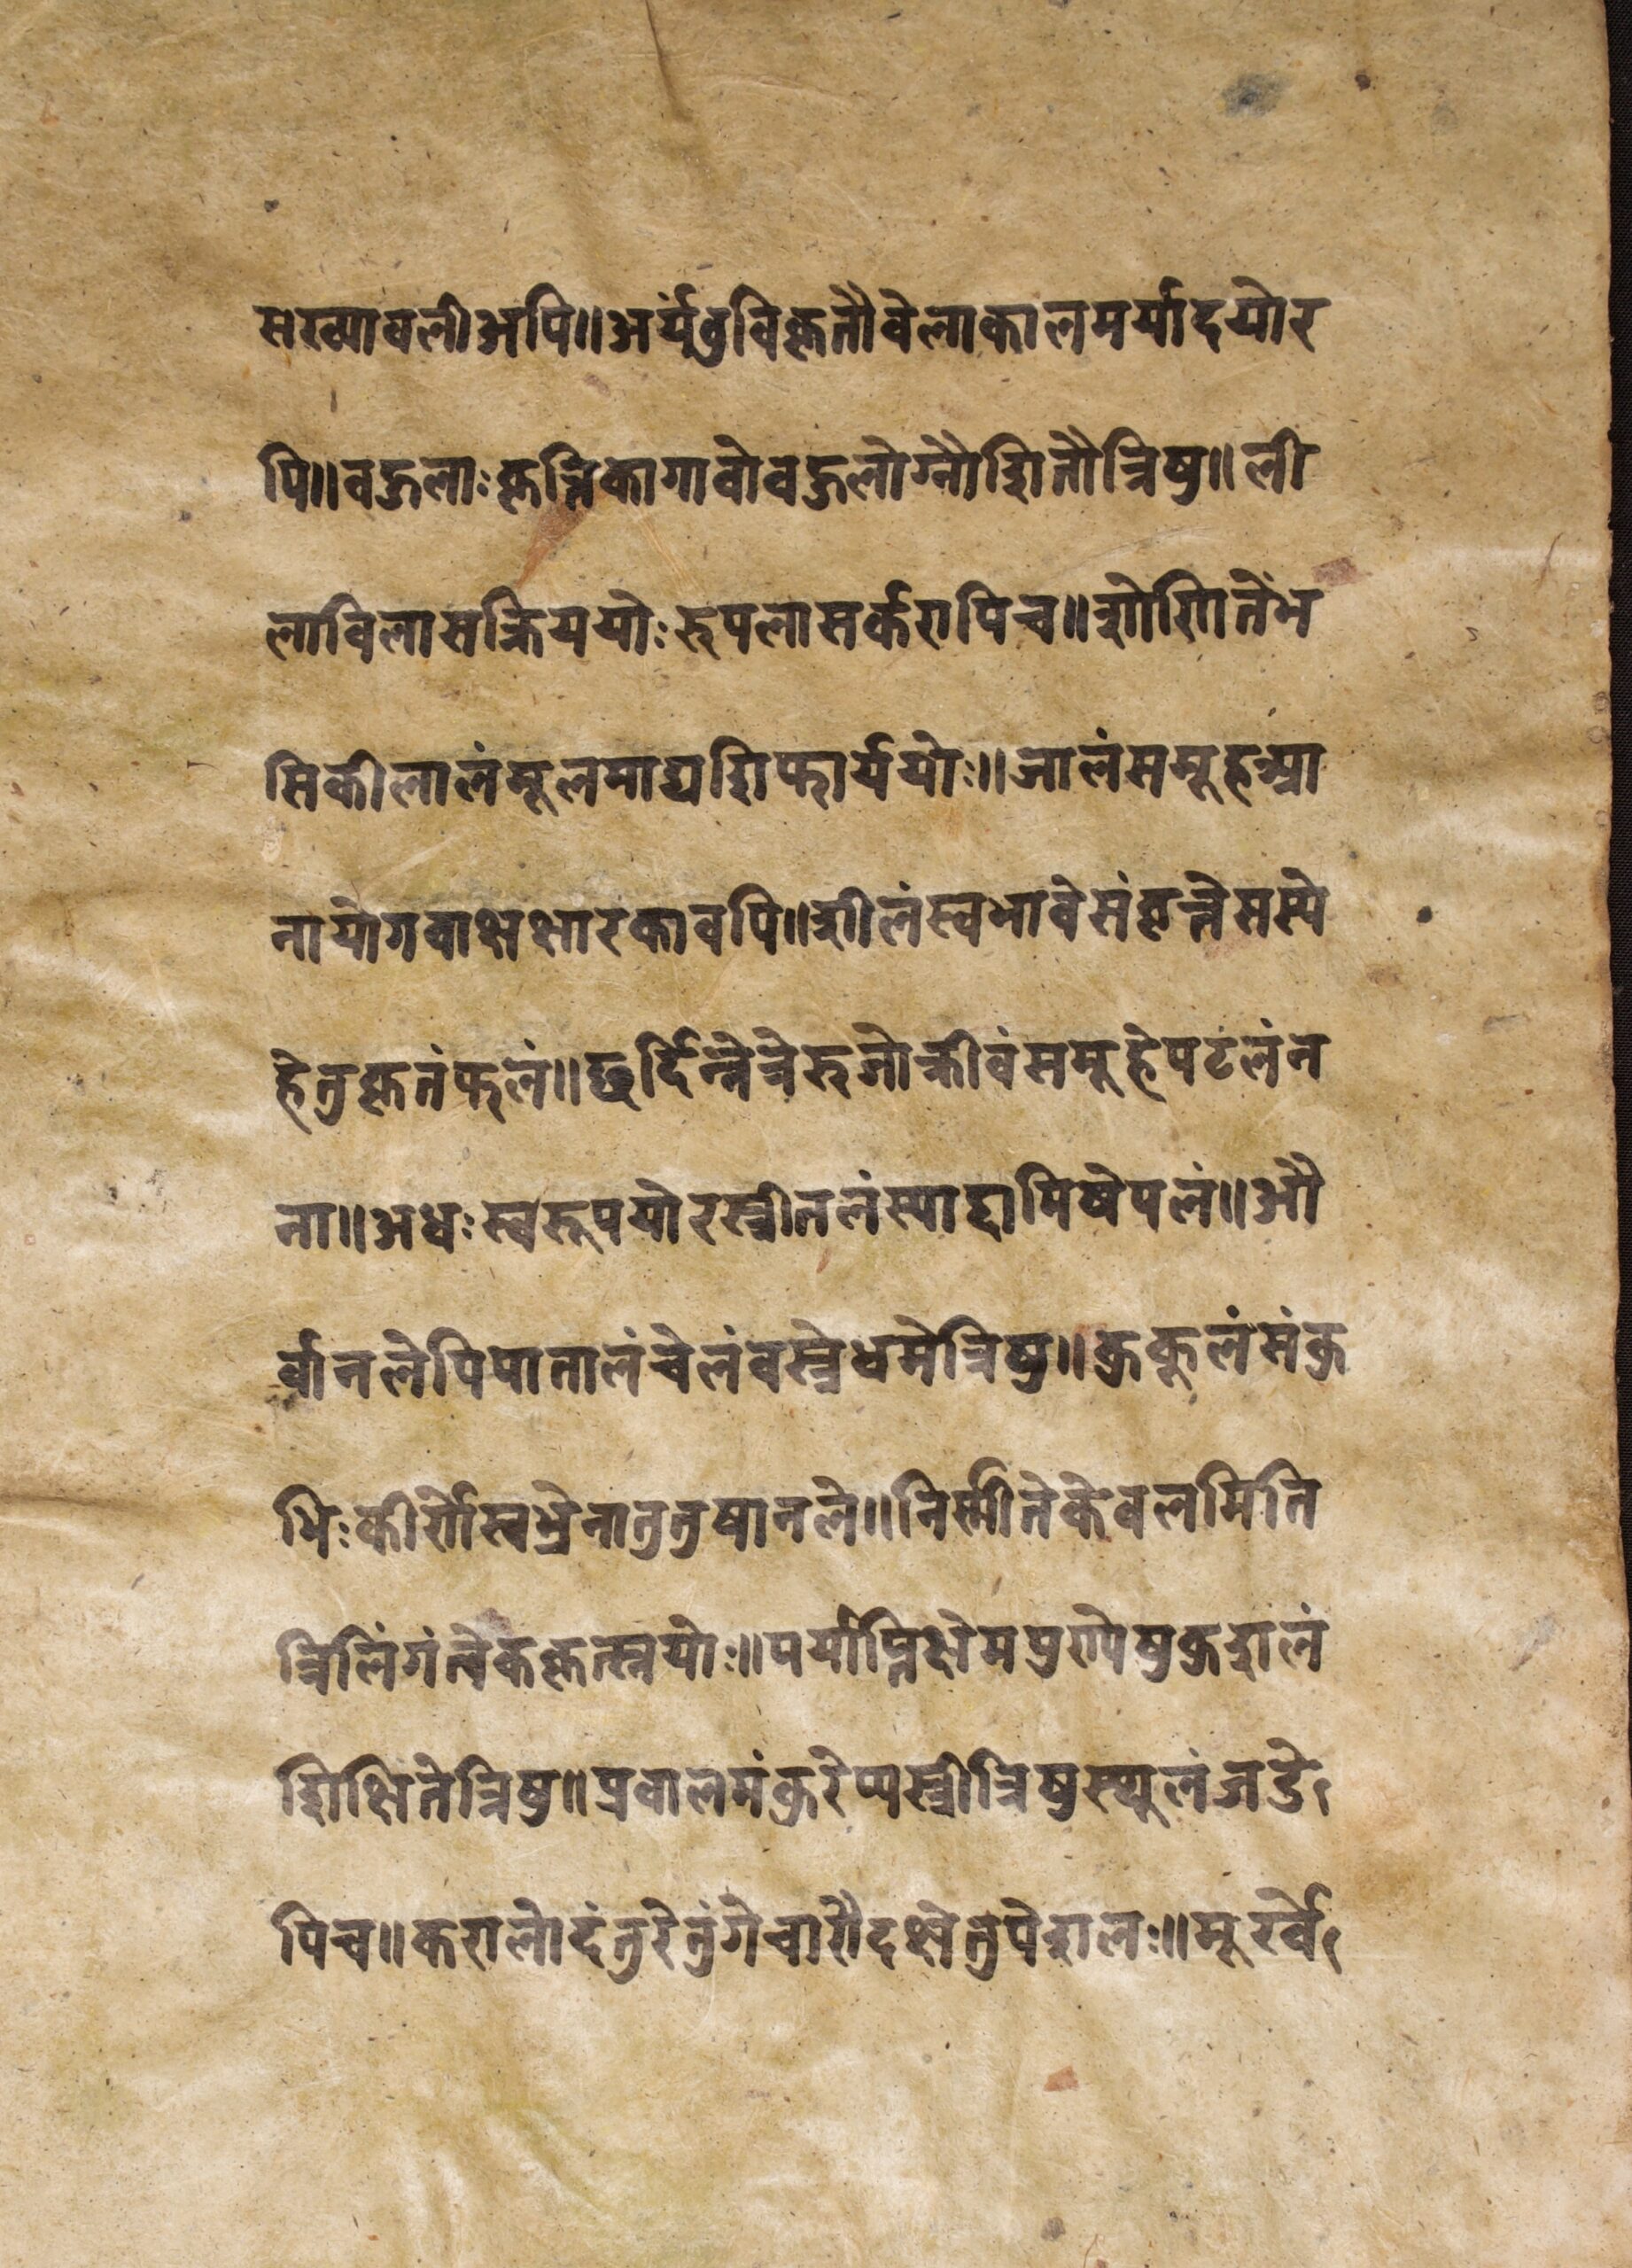 सख्यावलीअपि॥अर्य्यंवुविकृतौवेलाकालमर्यादयोर
पि॥वहुलाःकृत्तिकागावोवहुलोग्नौशितौत्रिषु॥ली
लाविलासक्रिययोःरुपलासर्करापिच॥शोणितेंभ
सिकीलालंमूलमाद्यशिफार्ययोः॥जालंसमूहआ
नायोगवाक्षक्षारकावपि॥शीलंस्वभावेसंवृत्तेसस्ये
हेतुकृतंफलं॥छर्दिन्नेत्रेरुजोक्लीवंसमूहेपटलंन
ना॥अधःस्वरूपयोरस्त्रीतलंस्याद्दामिषेपलं॥औ
र्वानलेपिपातालंचेलंवस्त्रेधमेत्रिषु॥कुकुलंमंकु
भिःकीर्णेस्वभ्रेनातुतुषानले॥निर्स्मीतेकेवलमिति
त्रिलिंगंत्वेककृत्स्नयोः॥पर्याप्तिक्षेमपुण्येषुकुशलं
शिक्षितेत्रिषु॥प्रवालमंकुरेप्यस्त्रीत्रिषुस्थूलंजडे
पिच॥करालोदंतुरेतुंगेचारौदक्षेतुपेशलः॥मूर्खे